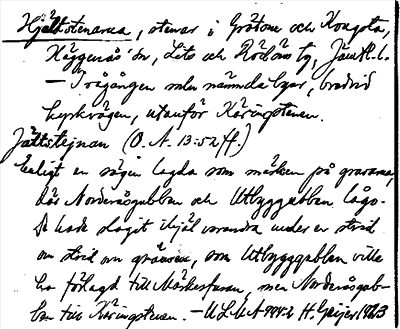 Hjältstenarna, stenar i Grötom och Kougsta,
Häggenås sn, Lits och Rödöns tg, Jämtl. l.
— I rågången mln nämnda byar, bredvid
kyrkvägen, utanför Käringstenen.
Jältstejnan (O. N. 13:52 ff.)
Enligt en sägen lagda som märken på gravarna
där Nordersögubben och Utbyggubben lågo.
De hade slagit ihjäl varandra under en strid
om strid om gränsen, som Utbyggubben ville
ha förlagd till Mörkesfuran, men Nordersögub-
ben till Käringstenen. — ULMA 994:2 H. Geijer 1923